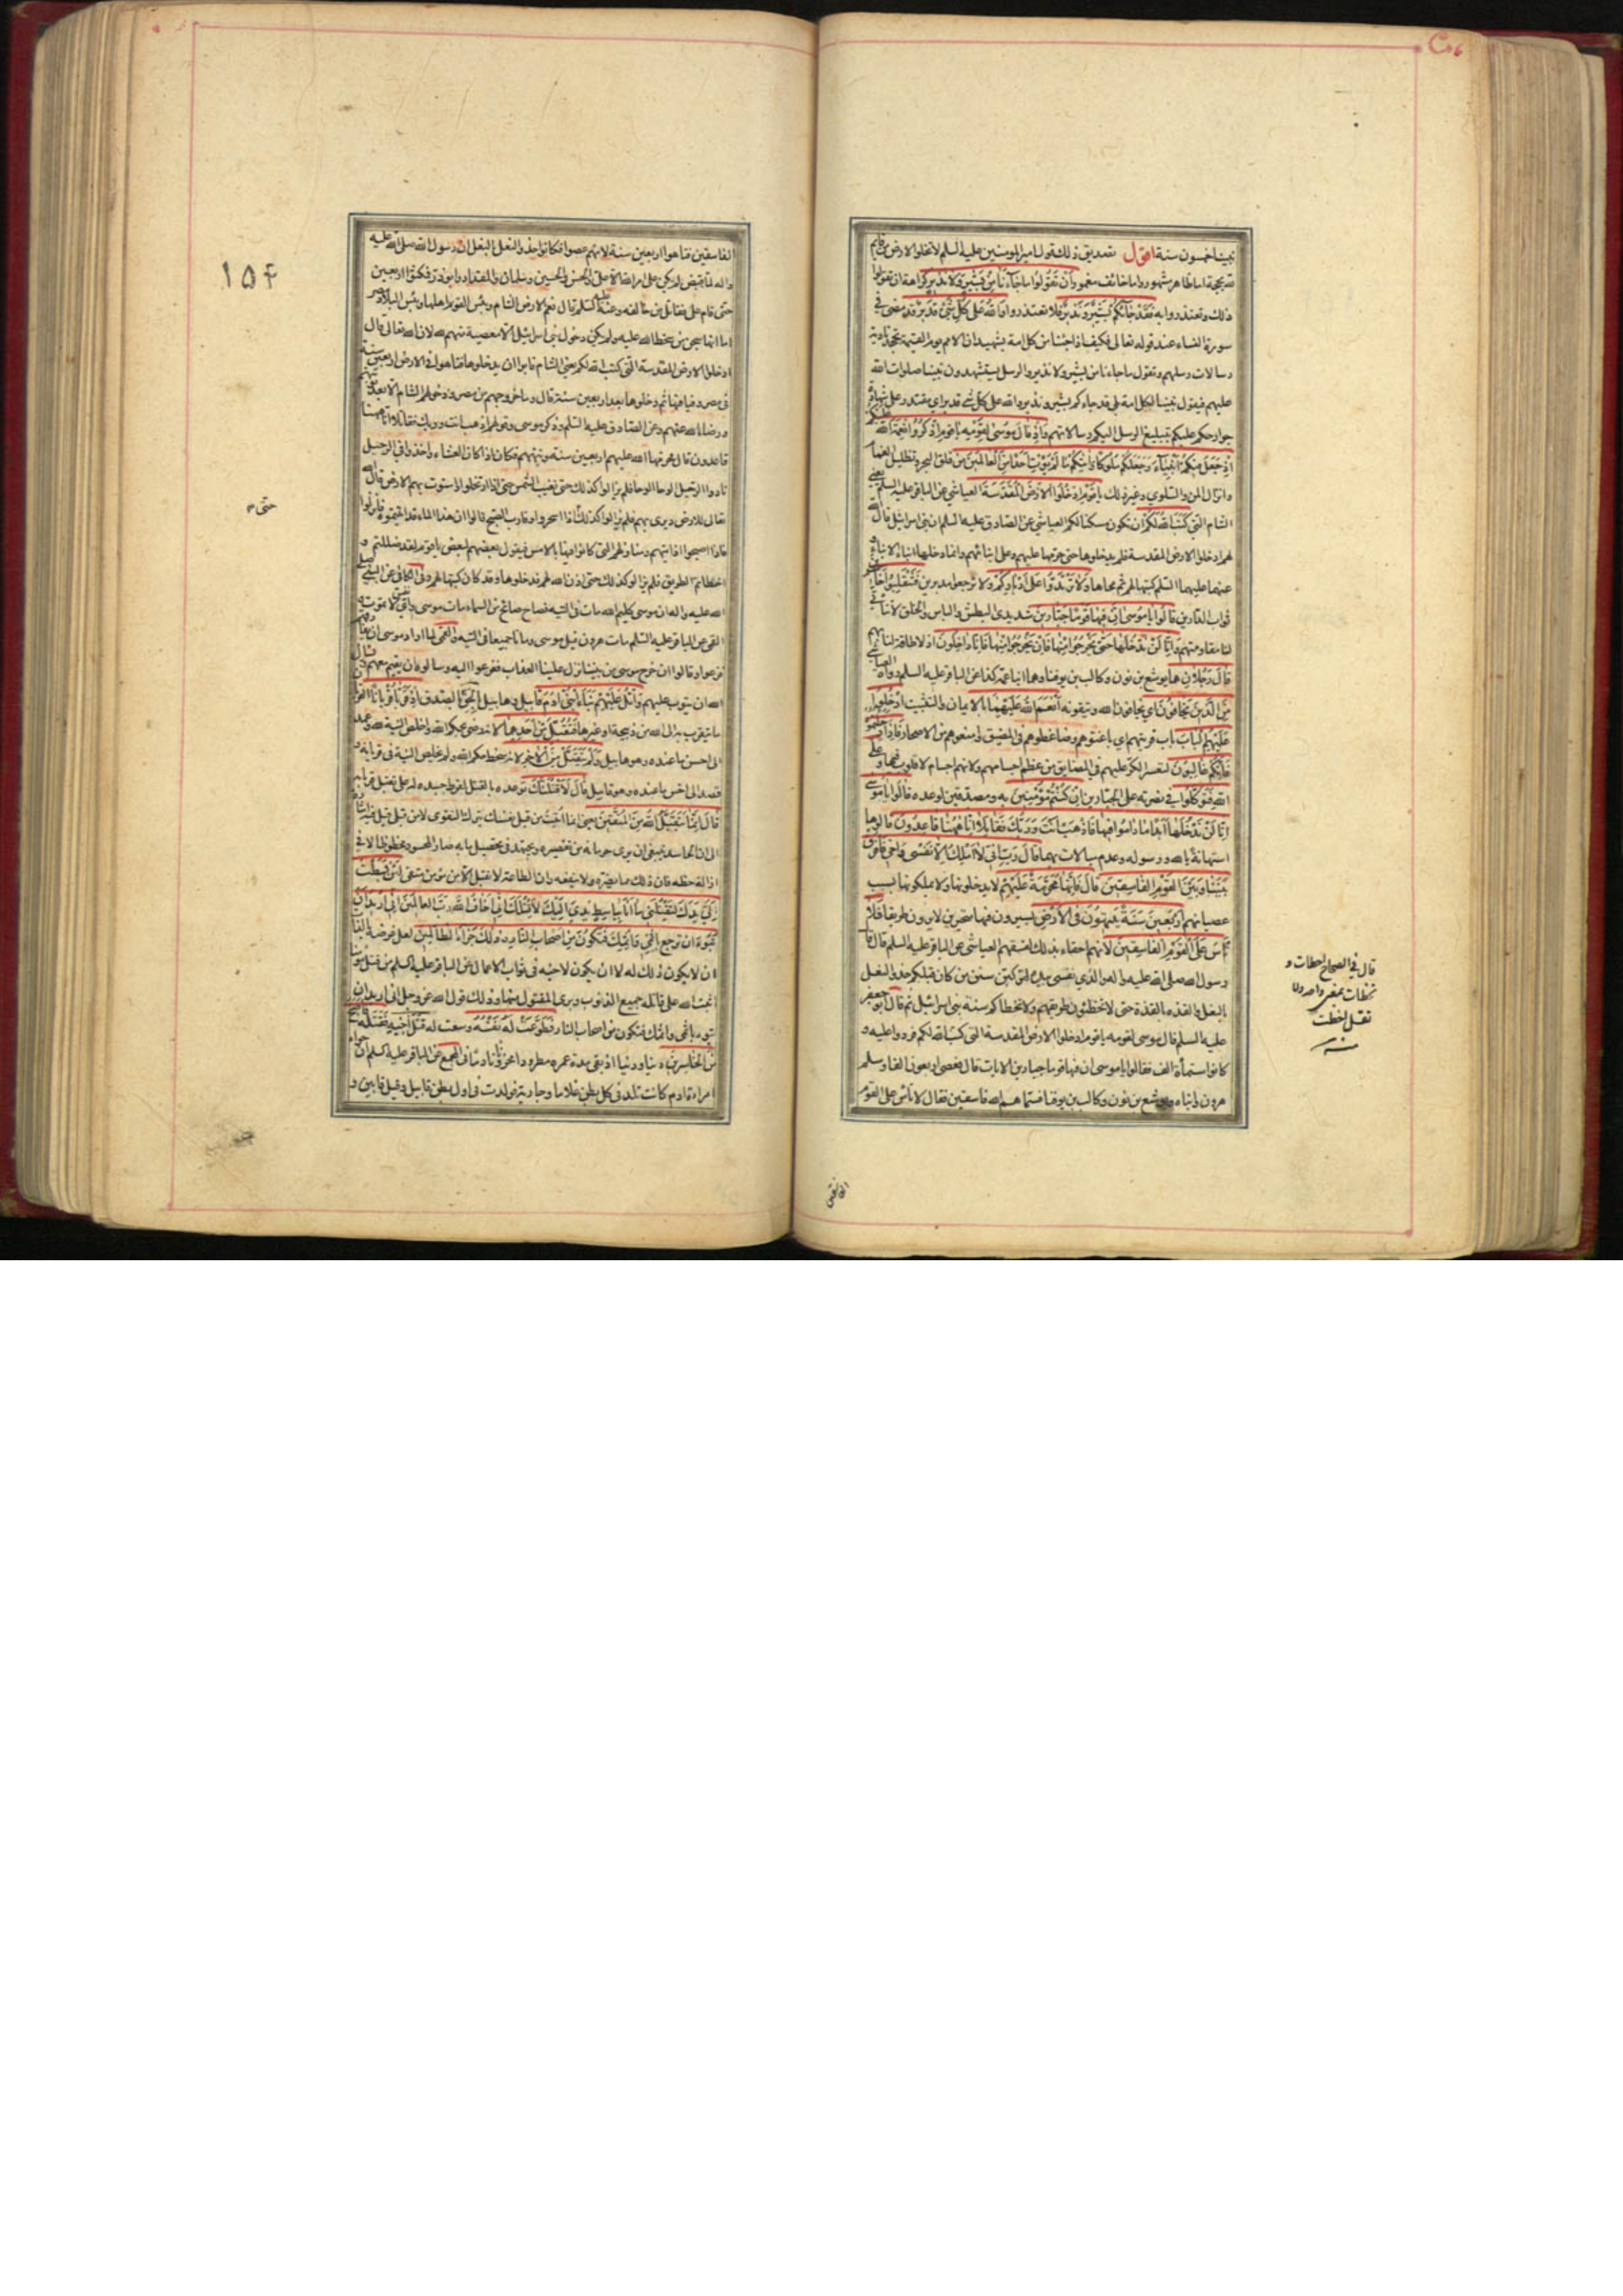 نبينا خمسون سنة اقول تصديق ذلك قول امير المومنين عليه السلم لا تخلو الارض من قايم
لله بحجة اما ظاهر مشهور واما خائف مغمور وان تَقُولُوا مَا جَاءَنَا مِن بَشِيرٍ وَلا نَذِيرٍ كراهة ان تقولوا
ذلك وتعتذروا به فَقَدْ جَاءَكُمْ بَشِيرٌ وَنَذِيرٌ فلا تعتذروا وَاللهُ عَلى كُلِّ شَيْءٍ قَدِيرٌ قد مضى في
سورة النساء عند قوله تعالى فكيف اذا جئنا من كل امة بشهيد ان الامم يوم القيمة تجحد تادية
رسالات رسلهم وتقول ما جاءنا من بشير ولا نذير والرسل يستشهدون نبينا صلوات الله
عليهم فيقول نبينا لكل امة بلى قد جاءكم بشير ونذير والله على كل شئ قدير اي مقتدر على شهادة
جوارحكم عليكم بتبليغ الرسل اليكم رسالاتهم وَاِذْ قَالَ مُوسَى لِقَوْمِهِ يَا قَوْمِ اذْكُرُوا نِعْمَةَ اللهِ عليكم
اِذْ جَعَلَ فِيكُمْ اَنْبِيَاءَ وَجَعَلَكُمْ مُلُوكًا وَاٰتٰيكُمْ مَا لَمْ يُؤْتِ اَحَدًا مِنَ الْعَالَمِينَ من فلق البحر وتظليل الغمام
وانزال المن والسلوى وغير ذلك يَا قَوْمِ ادْخُلُوا الْاَرْضَ الْمُقَدَّسَةَ العياشي عن الباقر عليه السلم يعني
الشام الَّتِي كَتَبَ اللهُ لَكُمْ ان تكون مسكنا لكم العياشي عن الصادق عليه السلم ان بني اسرائيل قال الله
لهم ادخلوا الارض المقدسة فلم يدخلوها حتى حرمها عليهم وعلى ابنائهم وانما دخلها ابناء الابناء و
عنهما عليهما السلم كتبها لهم ثم محاها وَلا تَرْتَدُّوا عَلى اَدْبَارِكُمْ ولا ترجعوا مدبرين فَتَنْقَلِبُوا خَاسِرِينَ
ثواب الدارين قَالُوا يَا مُوسَى اِنَّ فِيهَا قَوْمًا جَبَّارِينَ شديدي البطش والباس والخلق لا تتأتى
لنا مقاومتهم وَاِنَّا لَنْ نَدْخُلَهَا حَتّى يَخْرُجُوا مِنْهَا فَاِنْ يَخْرُجُوا مِنْهَا فَاِنَّا دَاخِلُونَ اذ لا طاقة لنا بهم
قَالَ رَجُلَانِ هما يوشع بن نون وكالب بن يوفنا وهما ابنا عمه كذا عن الباقر عليه السلم رواه العياشي
مِنَ الَّذِينَ يَخَافُونَ اي يخافون الله ويتقونه اَنْعَمَ اللهُ عَلَيْهِمَا بالايمان والتثبيت ادْخُلُوا
عَلَيْهِمُ الْبَابَ باب قريتهم اي باغتوهم وضاغطوهم في المضيق وامنعوهم من الاصحار فَاِذَا دَخَلْتُمُوهُ
فَاِنَّكُمْ غَالِبُونَ لتعسر الكر عليهم في المضايق من عظم اجسامهم ولانهم اجسام لا قلوب فيها وَعَلى
اللهِ فَتَوَكَّلُوا في نصرته على الجبارين اِنْ كُنْتُمْ مُؤْمِنِينَ به ومصدقين لوعده قَالُوا يَا مُوسى
اِنَّا لَنْ نَدْخُلَهَا اَبَدًا مَا دَامُوا فِيهَا فَاذْهَبْ اَنْتَ وَرَبُّكَ فَقَاتِلَا اِنَّا هٰهُنَا قَاعِدُونَ قالوها
استهانة بالله ورسوله وعدم مبالات بهما قَالَ رَبِّ اِنِّي لَا اَمْلِكُ اِلَّا نَفْسِي وَاَخِي فَافْرُقْ
بَيْنَنَا وَبَيْنَ الْقَوْمِ الْفَاسِقِينَ قَالَ فَاِنَّهَا مُحَرَّمَةٌ عَلَيْهِمْ لا يدخلونها ولا يملكونها بسبب
عصيانهم اَرْبَعِينَ سَنَةً يَتِيهُونَ فِي الْاَرْضِ يسيرون فيها متحيرين لا يرون طريقا فَلا
تَأْسَ عَلَى الْقَوْمِ الْفَاسِقِينَ لانهم احقاء بذلك لفسقهم العياشي عن الباقر عليه السلم قال قال
رسول الله صلى الله عليه واله والذي نفسي بيده لتركبن سنن من كان قبلكم حذو النعل
بالنعل والقذة بالقذة حتى لا تخطئون طريقهم ولا تخطاكم سنة بني اسرائيل ثم قال ابو جعفر
عليه السلم قال موسى لقومه يا قوم ادخلوا الارض المقدسة التي كتب الله لكم فردوا عليه و
كانوا ستمأة الف فقالوا يا موسى ان فيها قوما جبارين الايات قال فعصى اربعون الفا وسلم
هرون وابناه ويوشع بن نون وكالب بن يوفنا فسماهم الله فاسقين فقال لا تأس على القوم
الفاسقين
قال في الصحاح اخطات و
تخطات بمعنى واحد ولا
تقل اخطيت
منه
١٥٤
الفاسقين فتاهوا اربعين سنة لانهم عصوا فكانوا حذو النعل بالنعل ان رسول الله صلى الله عليه
واله لما قبض لم يكن على امر الله الا علي والحسن والحسين وسلمان والمقداد وابوذر فمكثوا اربعين
حتى قام علي فقاتل من خالفه وعنه عليه السلم قال نعم الارض الشام وبئس القوم اهلها وبئس البلاد مصر
اما انها سجن من سخط الله عليه ولم يكن دخول بني اسرائيل الا معصية منهم لله لان الله تعالى قال
ادخلوا الارض المقدسة التي كتب الله لكم يعني الشام فابوا ان يدخلوها فتاهوا في الارض اربعين سنة
في مصر وفيافيها ثم دخلوها بعد اربعين سنة قال وما خروجهم من مصر ودخولهم الشام الا بعد توبتهم
ورضا الله عنهم وعن الصادق عليه السلم وذكر موسى وقولهم اذهب انت وربك فقاتلا انا ههنا
قاعدون قال فحرمها الله عليهم اربعين سنة وتيههم فكان اذا كان العشاء واخذوا في الرحيل
نادوا الرحيل الوحا الوحا فلم يزالوا كذلك حتى تغيب الشمس حتى اذا ارتحلوا واستوت بهم الارض قال الله
تعالى للارض ديري بهم فلم يزالوا كذلك اذا اسحروا وقارب الصبح قالوا ان هذا الماء قد اتيتموه فانزلوا
فاذا اصبحوا اذا تيههم ومنازلهم التي كانوا فيها بالامس فيقول بعضهم لبعض يا قوم لقد ضللتم و
اخطاتم الطريق فلم يزالوا كذلك حتى اذن الله لهم فدخلوها وقد كان كتبها لهم وفي الكافي عن النبي صلى
الله عليه واله ان موسى كليم الله مات في التيه فصاح صائح من السماء مات موسى واي نفس لا تموت و
القمي عن الباقر عليه السلم مات هرون قبل موسى وماتا جميعا في التيه والقمي لما اراد موسى ان يفارقهم
فزعوا وقالوا ان خرج موسى من بيننا نزل علينا العذاب ففزعوا اليه وسالوه ان يقيم معهم ويسال
الله ان يتوب عليهم وَاتْلُ عَلَيْهِمْ نَبَاَ ابْنَيْ اٰدَمَ قابيل وهابيل بِالْحَقِّ بالصدق اِذْ قَرَّبَا قُرْبَانًا القربان
ما يتقرب به الى الله من ذبيحة او غيرها فَتُقُبِّلَ مِنْ اَحَدِهِمَا لانه رضي بحكم الله واخلص النية لله وعمد
الى احسن ما عنده وهو هابيل وَلَمْ يُتَقَبَّلْ مِنَ الْاٰخَرِ لانه سخط حكم الله ولم يخلص النية في قربانه و
قصد الى اخس ما عنده وهو قابيل قَالَ لَاَقْتُلَنَّكَ توعده بالقتل لفرط حسده له على تقبل قربانه
قَالَ اِنَّمَا يَتَقَبَّلُ اللهُ مِنَ الْمُتَّقِينَ يعني انما اتيت من قبل نفسك بترك التقوى لا من قبلي قيل فيه اشارة
الى ان الحاسد ينبغي ان يرى حرمانه من تقصيره ويجتهد في تحصيل ما به صار المحسود محظوظا لا في
ازالة حظه فان ذلك مما يضره ولا ينفعه وان الطاعة لا تقبل الا من مؤمن متقي لَئِنْ بَسَطْتَ
اِلَيَّ يَدَكَ لِتَقْتُلَنِي مَا اَنَا بِبَاسِطٍ يَدِيَ اِلَيْكَ لِاَقْتُلَكَ اِنِّي اَخَافُ اللهَ رَبَّ الْعَالَمِينَ اِنِّي اُرِيدُ اَنْ
تَبُوءَ ان ترجع بِاِثْمِي وَاِثْمِكَ فَتَكُونَ مِنْ اَصْحَابِ النَّارِ وَذٰلِكَ جَزَاءُ الظَّالِمِينَ لعل غرضه بالذات
ان لا يكون ذلك له لا ان يكون لاخيه في ثواب الاعمال عن الباقر عليه السلم من قتل مؤمنا
اثبت الله على قاتله جميع الذنوب وبرئ المقتول منها وذلك قول الله عز وجل اني اريد ان
تبوء باثمي واثمك فتكون من اصحاب النار فَطَوَّعَتْ لَهُ نَفْسُهُ وسعت له قَتْلَ اَخِيهِ فَقَتَلَهُ فَاَصْبَحَ
مِنَ الْخَاسِرِينَ دينا ودنيا اذ بقي مدة عمره مطرودا محزونا نادما في المجمع عن الباقر عليه السلم ان حواء
امراة ادم كانت تلد في كل بطن غلاما وجارية فولدت في اول بطن قابيل وقيل قابين و
حتى م